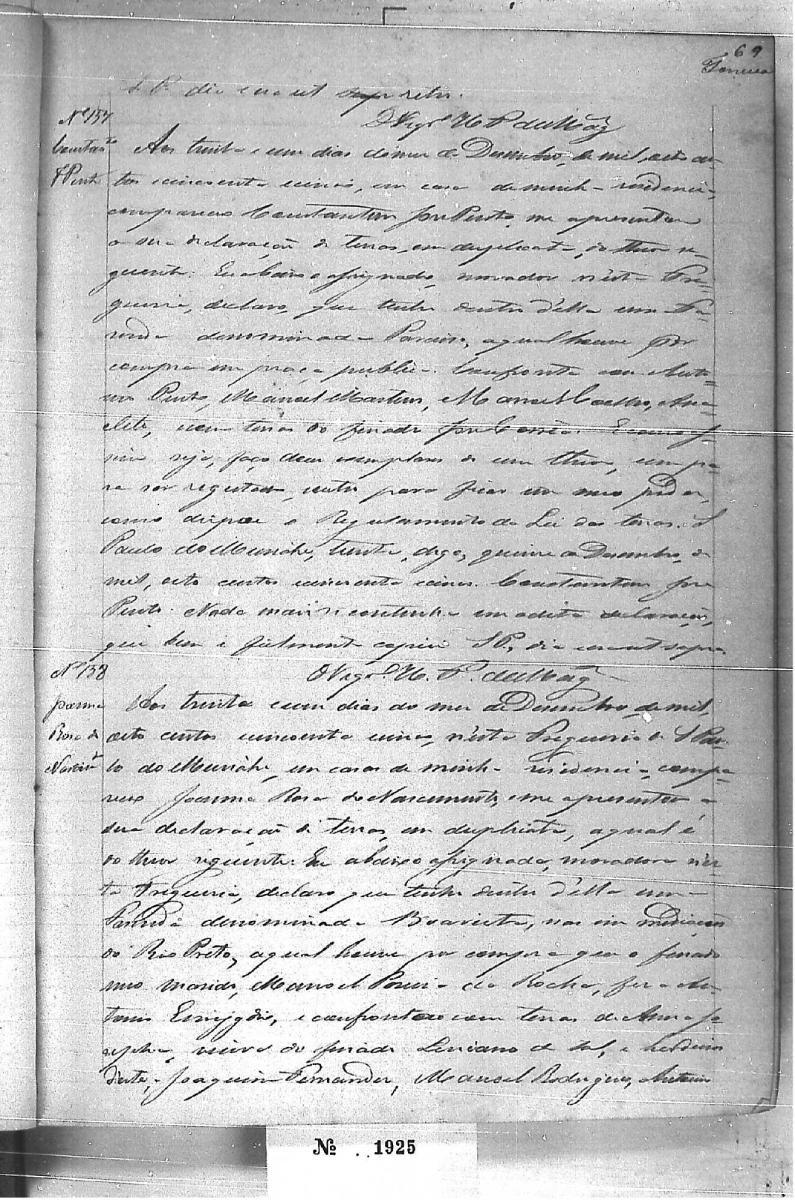 69
Fonseca
S. P. dia era ut supra retro.
Nº 157
O Vigrº. H. P. da
Constanto
J Pinto
Aos trinta e um dias do mez de Desembro, de mil, oito cen-
tos cincoenta e cinco, em casa de minha residencia,
compareceo Constantino José Pinto, me apresentou
a sua declaração de terras, em duplicata, do theor se-
guinte: Eu abaixo assignado, morador nésta Fre-
guesia, declaro, que tenho dentro d'élla uma Fa-
zenda denominada Paraiso, a qual houve por
compra em praça publica. Confronta com
Pinto, Manoel Martins, Manoel Coelho, Ana-
cleto, e com terras do finado José Corrêa. E como as-
sim seja, faço dous exemplares de um theor, um pa-
ra ser registado, e outro para ficar em meo poder,
como dispõe o Regulamento da Lei das terras. S.
Paulo do Muriahé, trinta, digo, quinze de Desembro, de
mil, oito centos cincoenta e cinco. Constantino José
Pinto. Nada mais se continha em a dita declaração,
que bem e fielmente copiei. S. P. dia era ut supra
Nº 158
O Vigrº. H. P. da
Joanna
Rosa do
Nascimto
Aos trinta e um dias do mez de Desembro, de mil,
oito centos cincoenta e cinco, nésta Freguesia de S. Pau-
lo do Muriahé, em casa de minha residencia, compa-
receo Joanna Rosa do Nascimento, e me apresentou a
sua declaração de terras, em duplicata, a qual é
do theor seguinte: Eu abaixo assignada, moradora nés-
ta Freguesia, declaro que tenho dentro d'élla uma
Fazenda denominada Boavista, nas
do Rio Preto, a qual houve por compra que o finado
meo marido, Manoel Pereira da Rocha, fez a An-
tonio Emygdio, e confronta com terras de Anna Jo-
sepha, viuva do finado Luciano de Sá, e herdeiros
d'este, Joaquim Fernandes, Manoel Rodrigues, Antonio
Nº 1925